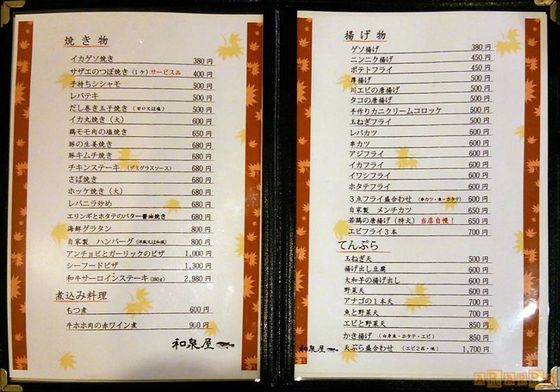 焼き物
イカゲソ焼き 380円
サザエのつぼ焼き(1ヶ)サービス品 400円
子持ちシシャモ 500円
レバテキ 500円
だし巻き玉子焼き(甘口又は塩) 500円
イカ丸焼き(大) 600円
鶏モモ肉の塩焼き 680円
豚の生姜焼き 680円
豚キムチ焼き 680円
チキンステーキ(デミグラスソース) 680円
さば焼き 680円
ホッケ焼き(大) 680円
レバニラ炒め 680円
エリンギとホタテのバター醤油焼き 680円
海鮮グラタン 800円
自家製 ハンバーグ(洋風又は和風) 800円
アンチョビとガーリックのピザ 1,000円
シーフードピザ 1,300円
和牛サーロインステーキ(180g) 2,980円
煮込み料理
もつ煮 600円
牛ホホ肉の赤ワイン煮 900円
和泉屋
揚げ物
ゲソ揚げ 380円
ニンニク揚げ 450円
ポテトフライ 450円
厚揚げ 500円
川エビの唐揚げ 500円
タコの唐揚げ 500円
手作りカニクリームコロッケ 500円
玉ねぎフライ 500円
レバカツ 600円
串カツ 600円
アジフライ 600円
イカフライ 600円
イワシフライ 600円
ホタテフライ 600円
3点フライ盛合わせ(串カツ・魚・ホタテ) 600円
自家製 メンチカツ 650円
若鶏の唐揚げ(特大)当店自慢! 650円
エビフライ3本 700円
てんぷら
玉ねぎ天 500円
揚げ出し豆腐 500円
大和芋の揚げ出し 600円
野菜天 600円
アナゴの1本天 700円
魚と野菜天 700円
エビと野菜天 850円
かき揚げ(白身魚・ホタテ・エビ) 850円
天ぷら盛合わせ 1,700円
和泉屋